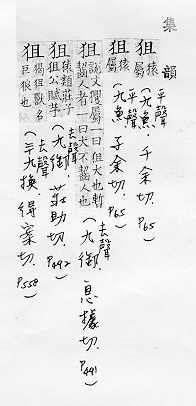 集韻
狙 猨屬 平聲 (九魚, 千余切. P65)
狙 猨屬 平聲 (九魚 子余切. P65)
狙 說文玃屬一曰狙犬也暫齧人者一曰犬不齧人也 去聲 (九御. 息據切. P491)
狙 猨類莊子狙公賦芧 去聲 (九御, 莊助切. P492)
狙 獦狙獸名巨狼也 去聲 (二九換 得案切. P558)